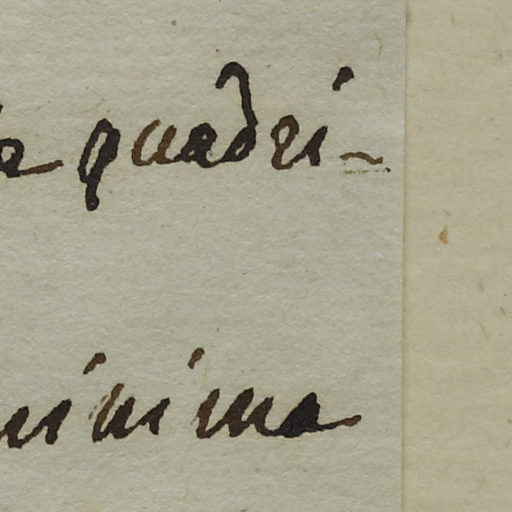 quadri-
minima